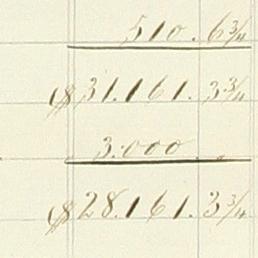 510.6¾
$31.161.3¾
3.000.
$28.161.3¾